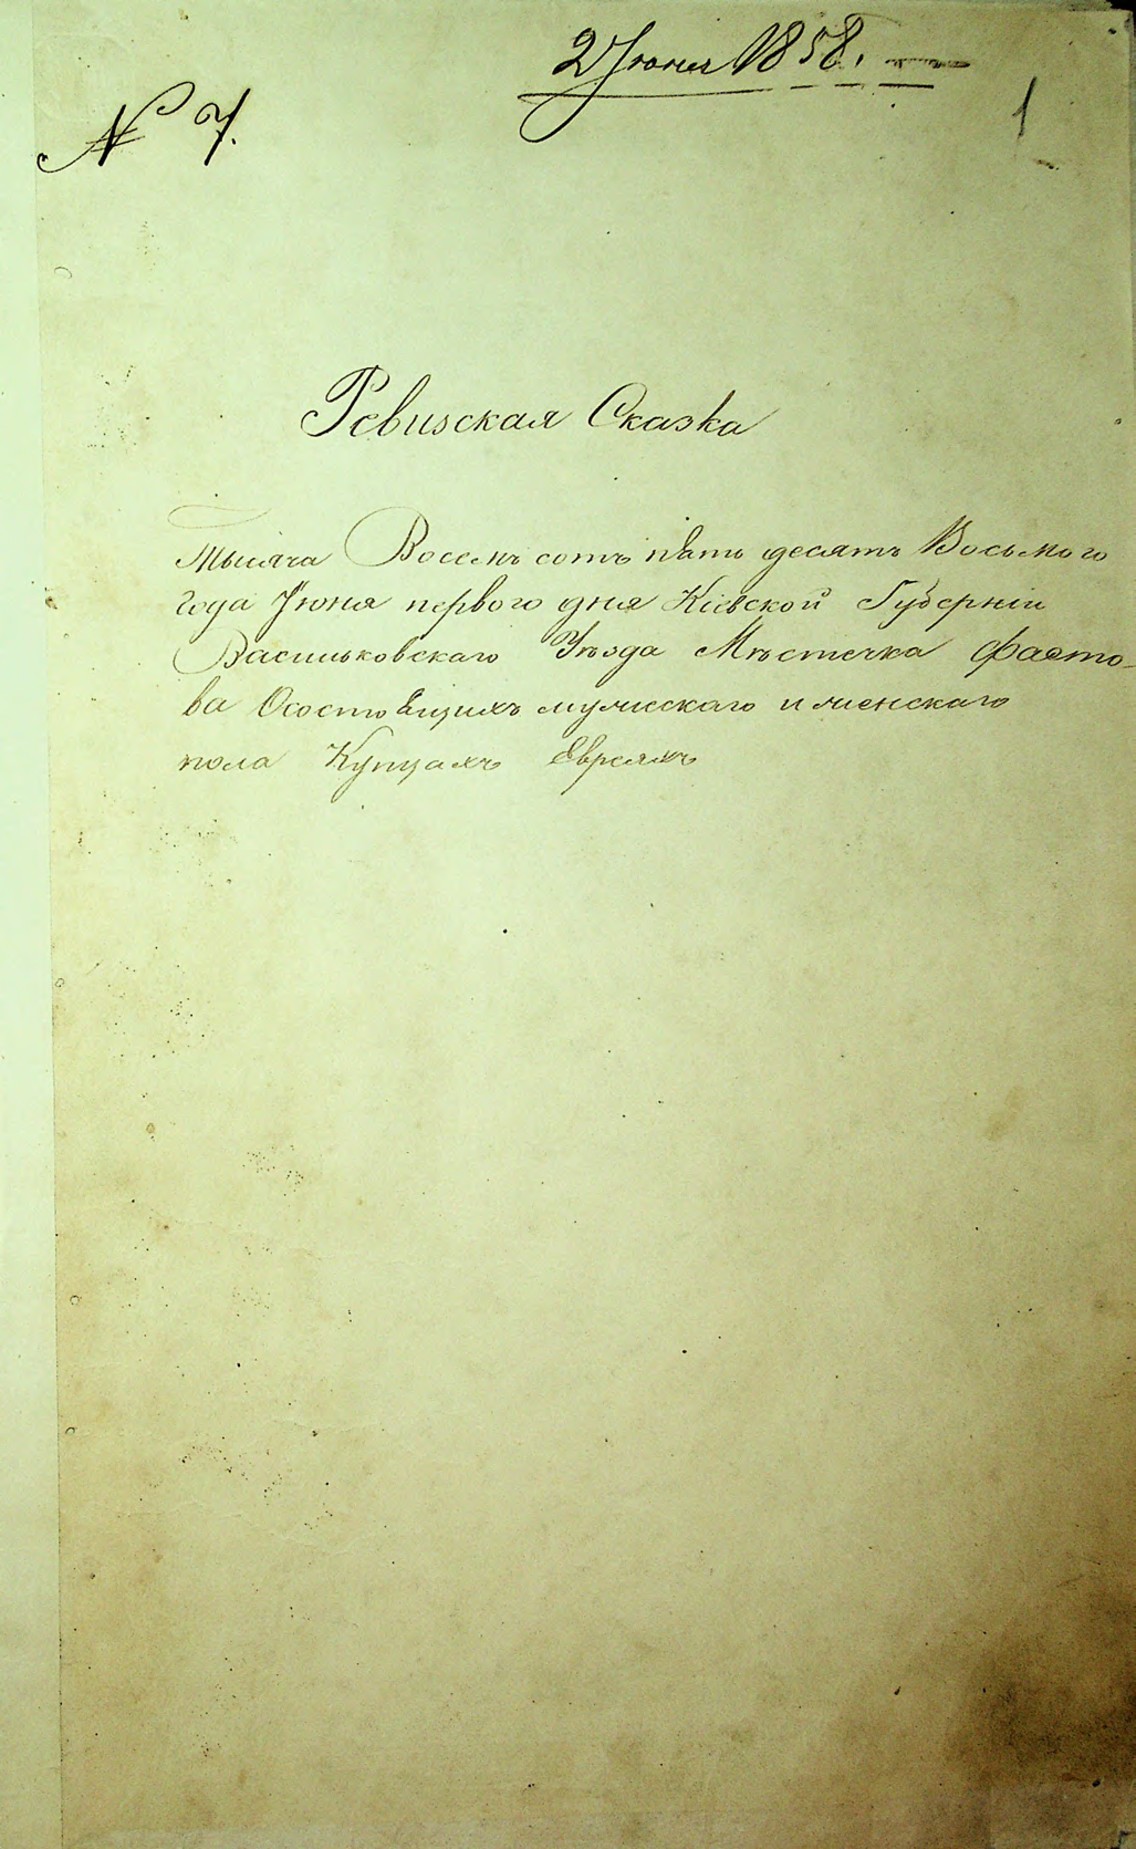 2 Июня 1858.
1
N 7.
Ревизская Сказка
Тысяча Восемъ сотъ пять десятъ Восьмого
года Июня первого дня Кіевской Губерніи
Васильковскаго Уѣзда Мѣстечка Фасто-
ва Осостоящихъ мужескаго и женскаго
пола Купцахъ Евреяхъ